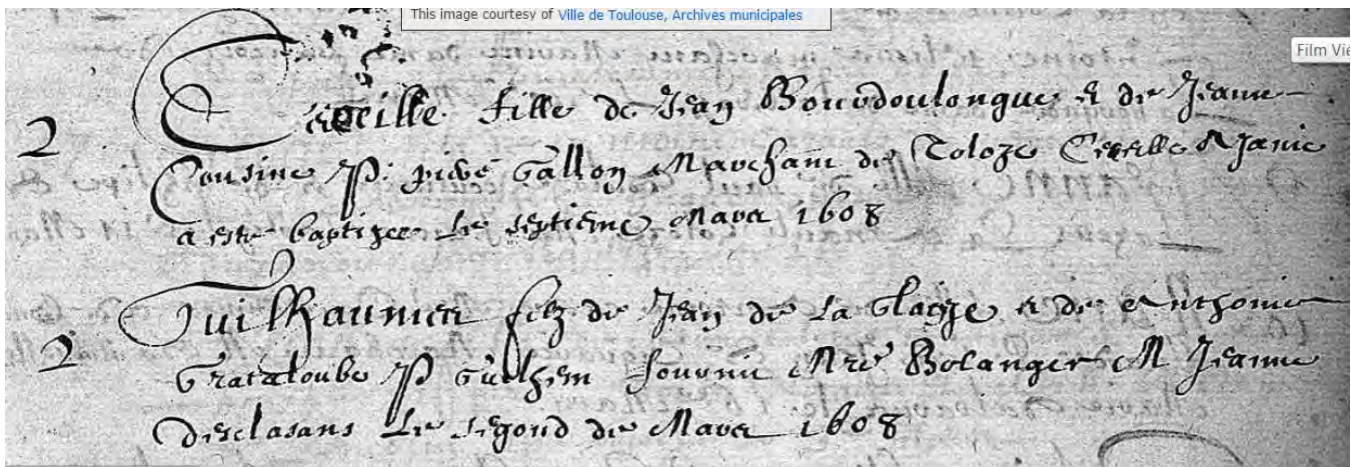 This image courtesy of Ville de Toulouse, Archives municipales
Film Vie
2 Cecille fille de Jean Bourdoulongue et de Jeanne
Cousine P. pierre Gallon Marchant de Toloze
a este baptizee le septieme Mars 1608
2 filz de Jean de La et de Anthonie
Grataloube P Guilhem Mre Bolanger M Jeanne
Desclasans Le segond de Mars 1608